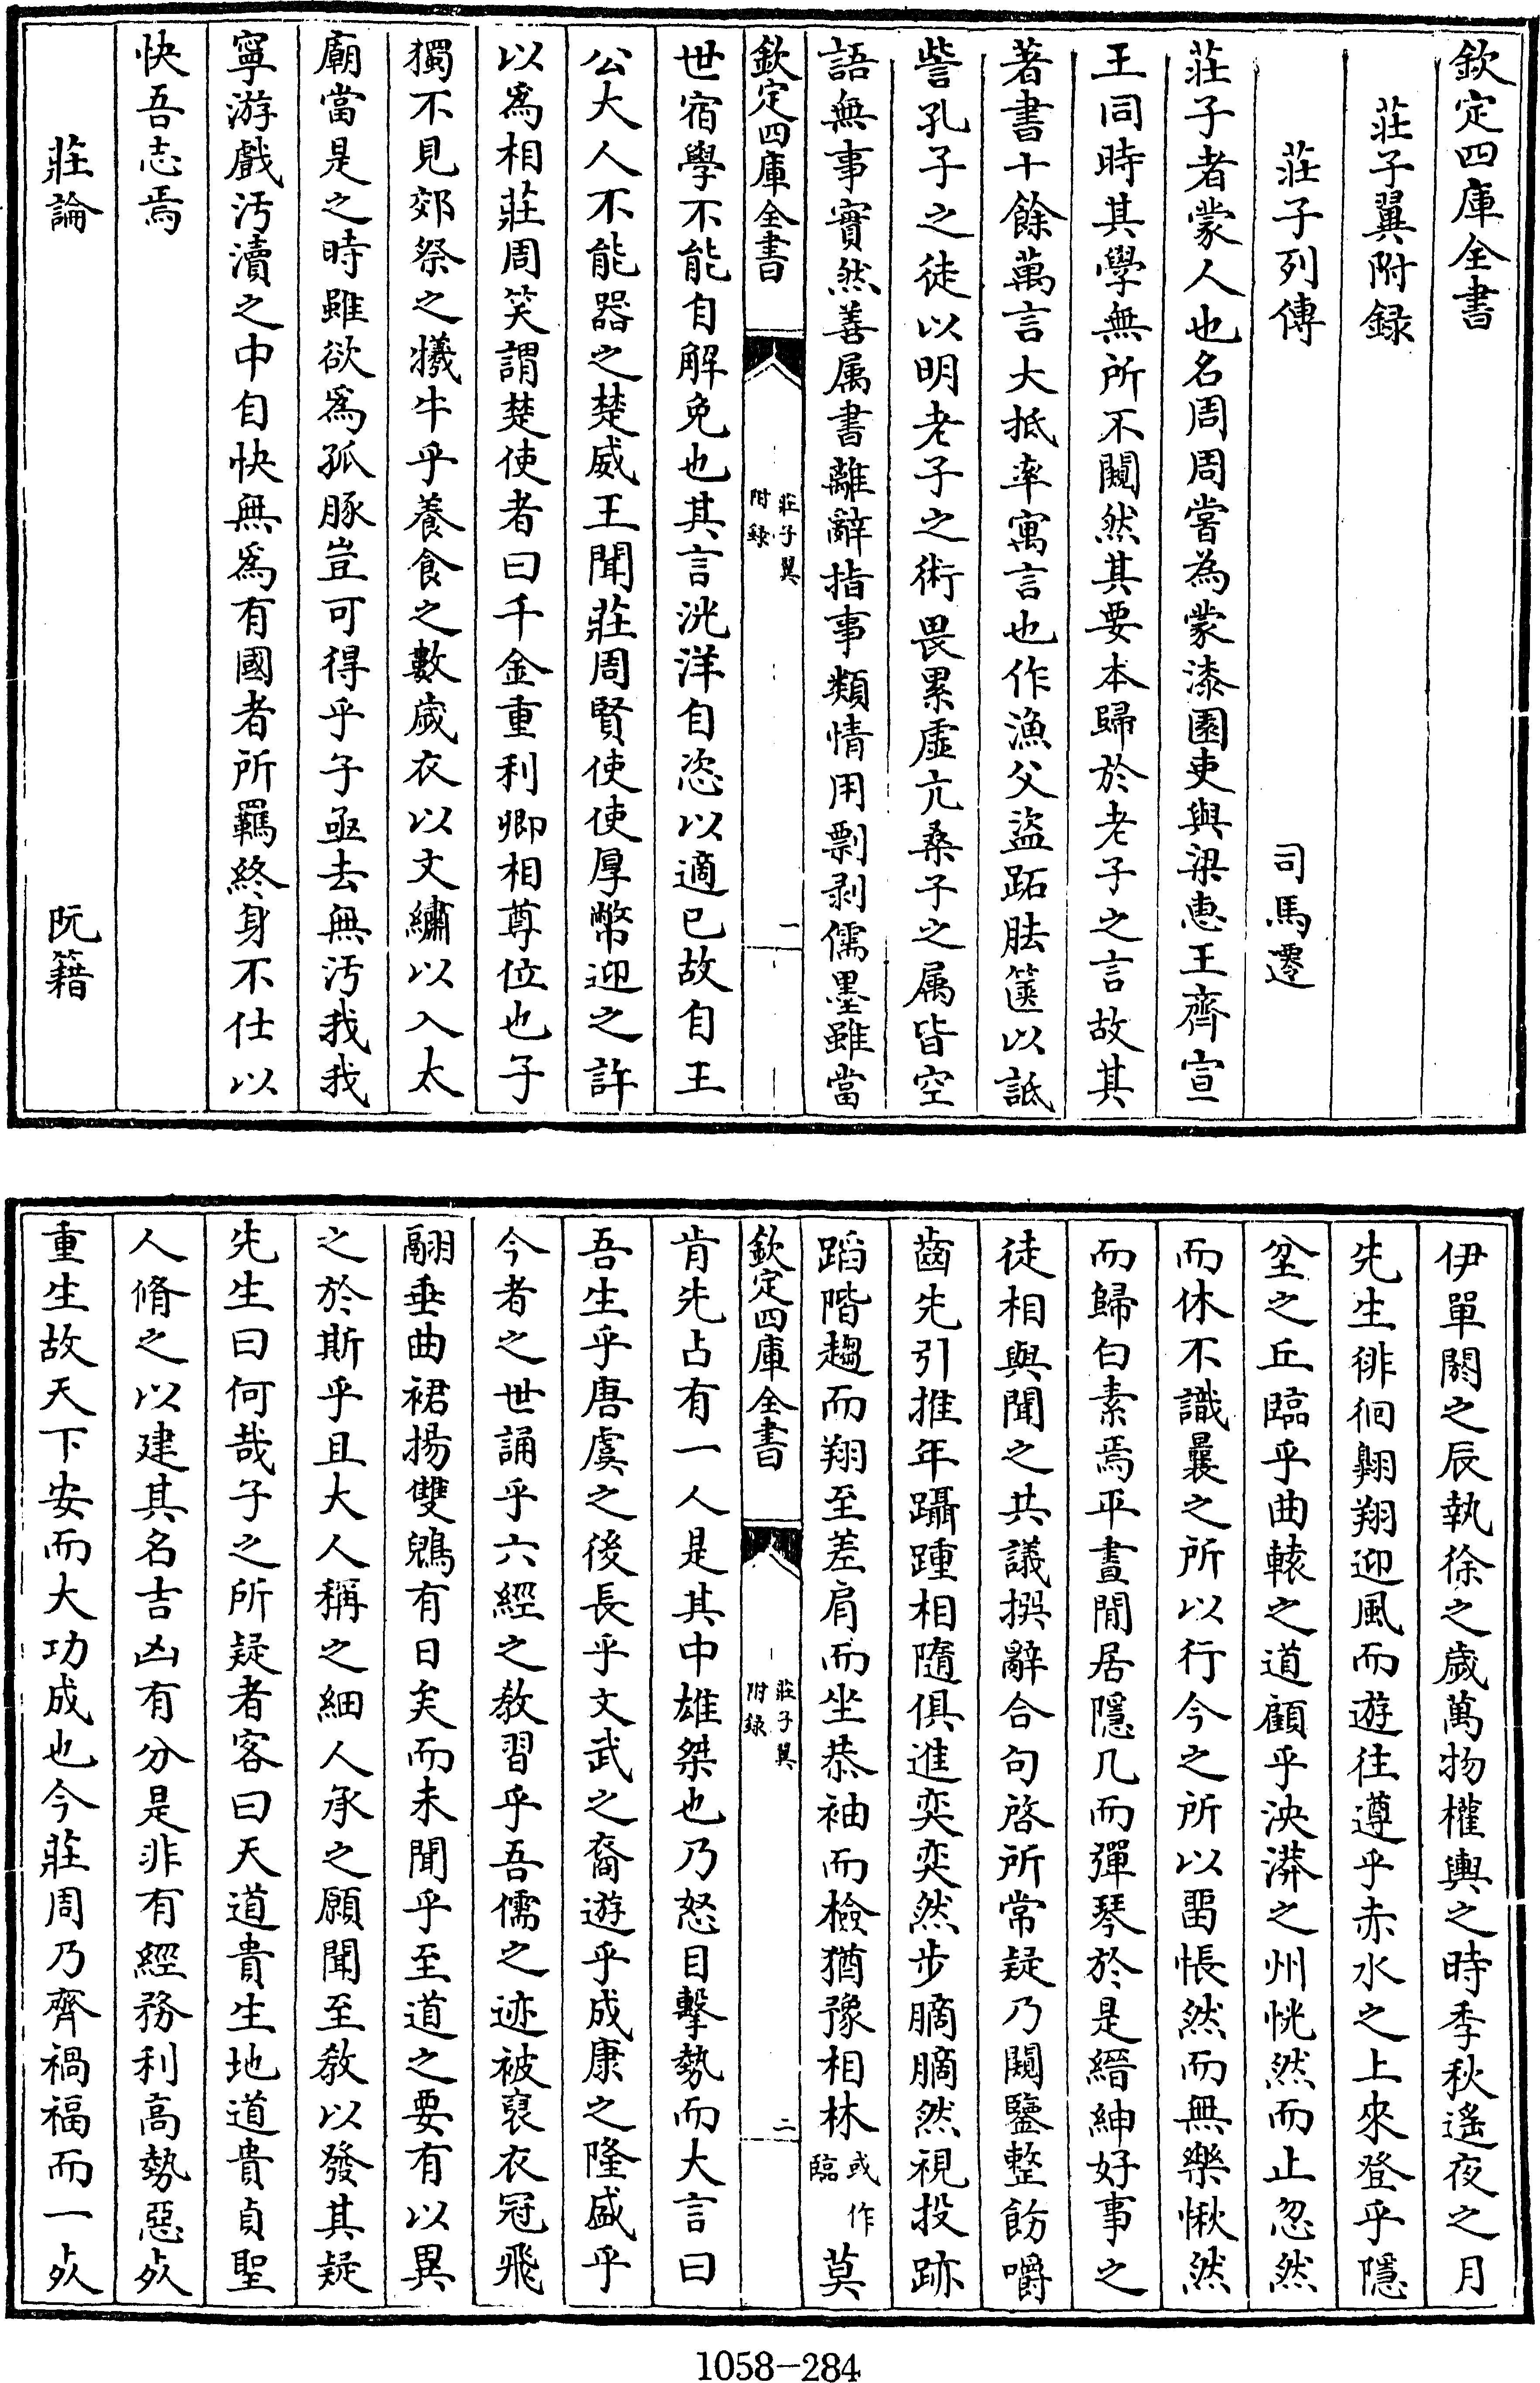 欽定四庫全書
莊子翼附録
莊子列傳　司馬遷
莊子者蒙人也名周周嘗為蒙漆園吏與梁惠王齊宣
王同時其學無所不闚然其要本歸於老子之言故其
著書十餘萬言大抵率寓言也作漁父盜跖胠篋以詆
訾孔子之徒以明老子之術畏累虛亢桑子之属皆空
語無事實然善属書離辭指事類情用剽剥儒墨雖當
欽定四庫全書
莊子翼
附録
一
世宿學不能自解免也其言洸洋自恣以適已故自王
公大人不能器之楚威王聞莊周賢使使厚幣迎之許
以爲相莊周笑謂楚使者曰千金重利卿相尊位也子
獨不見郊祭之犧牛乎養食之數歲衣以文繡以入太
廟當是之時雖欲爲孤豚豈可得乎子亟去無汚我我
寧游戲汚瀆之中自快無爲有國者所羈終身不仕以
快吾志焉
莊論　阮籍
伊單閼之辰執徐之歲萬物權輿之時季秋遙夜之月
先生徘徊翱翔迎風而遊往遵乎赤水之上來登乎隱
坌之丘臨乎曲轅之道顧乎泱漭之州恍然而止忽然
而休不識曩之所以行今之所以畱悵然而無樂愀然
而歸白素焉平晝閒居隱几而彈琴於是縉紳好事之
徒相與聞之共議撰辭合句啓所常疑乃闚鑒整飭嚼
齒先引推年躡踵相隨俱進奕奕然步䐧䐧然視投跡
蹈階趨而翔至差肩而坐恭袖而檢猶豫相林或作臨莫
欽定四庫全書
莊子翼
附録
二
肯先占有一人是其中雄桀也乃怒目擊勢而大言曰
吾生乎唐虞之後長乎文武之裔遊乎成康之隆盛乎
今者之世誦乎六經之教習乎吾儒之迹被裒衣冠飛
翮垂曲裙揚雙鶂有日矣而未聞乎至道之要有以異
之於斯乎且大人稱之細人承之願聞至教以發其疑
先生曰何哉子之所疑者客曰天道貴生地道貴貞聖
人脩之以建其名吉凶有分是非有經務利高勢惡死
重生故天下安而大功成也今莊周乃齊禍福而一死
1058-284